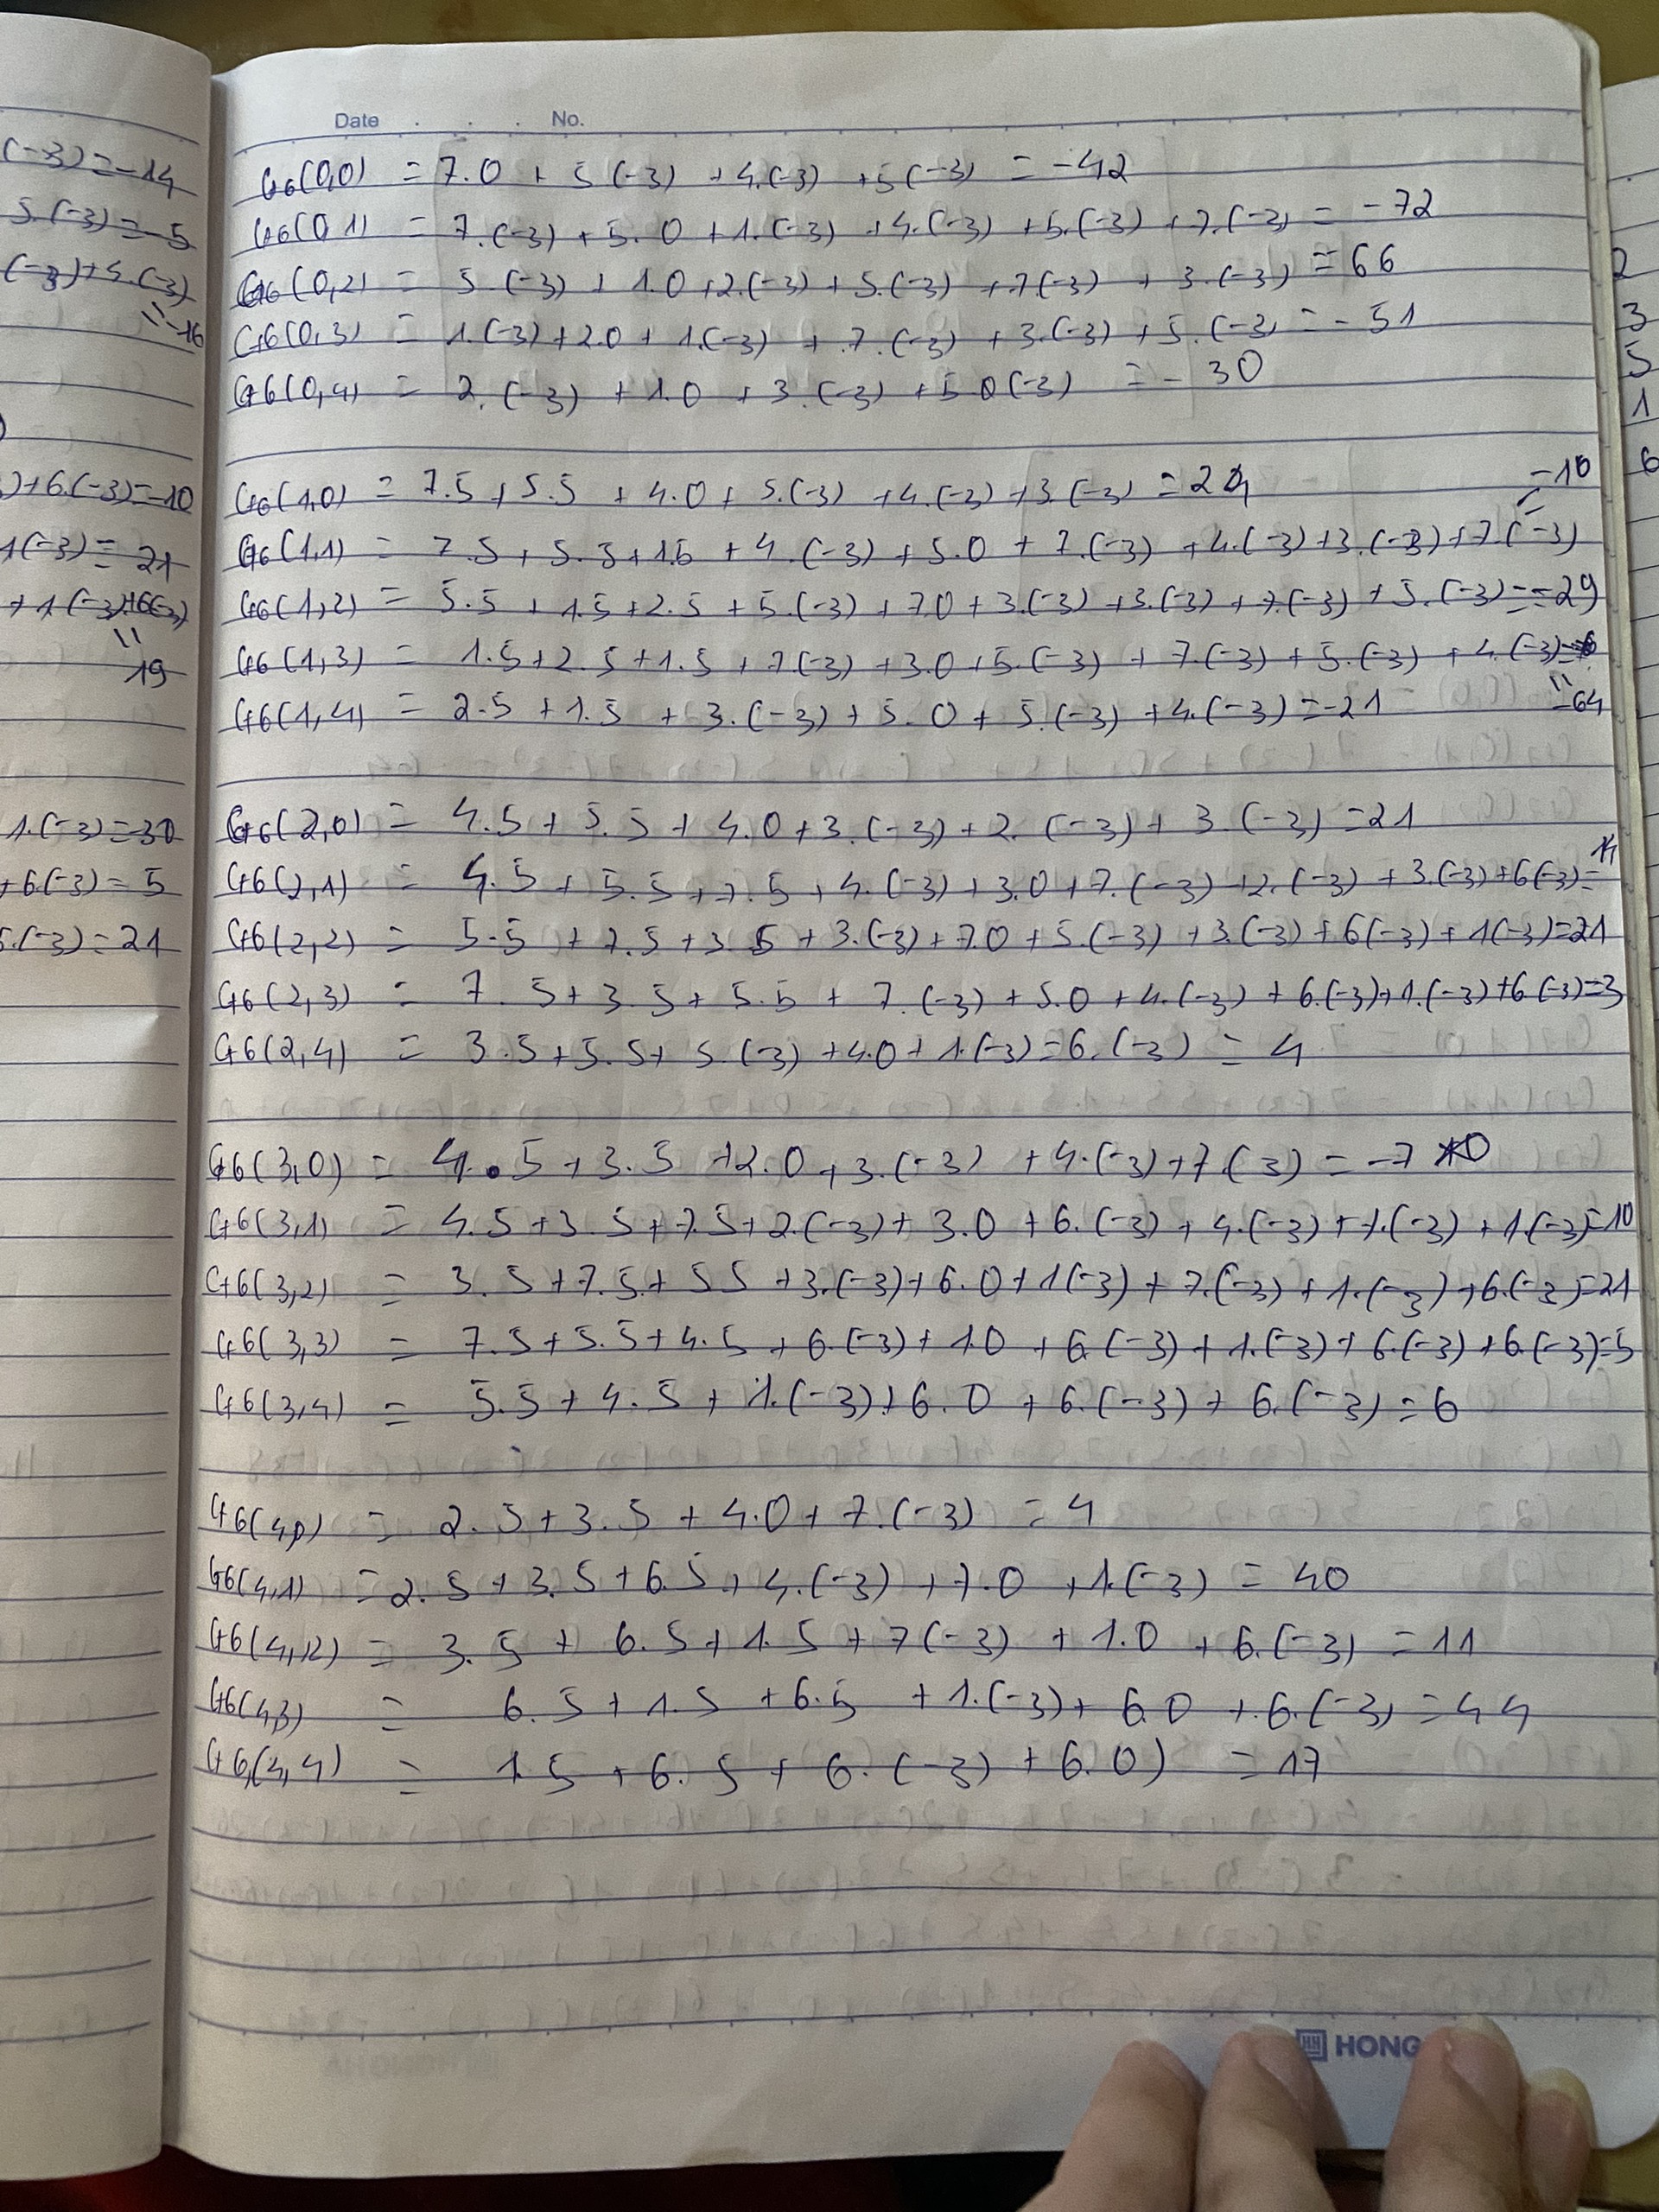 Date . . . No.
G6(0,0) = 7.0 + 5(-3) + 4.(-3) + 5(-3) = -42
G6(0,1) = 7.(-3) + 5.0 + 1.(-3) + 4.(-3) + 5.(-3) + 7.(-3) = -72
G6(0,2) = 5.(-3) + 1.0 + 2.(-3) + 5.(-3) + 7(-3) + 3.(-3) = 66
G6(0,3) = 1.(-3) + 2.0 + 1.(-3) + 7.(-3) + 3.(-3) + 5.(-3) = -51
G6(0,4) = 2.(-3) + 1.0 + 3.(-3) + 5.0(-3) = -30
G6(1,0) = 7.5 + 5.5 + 4.0 + 5.(-3) + 4.(-3) + 3.(-3) = 24
G6(1,1) = 7.5 + 5.5 + 1.5 + 4.(-3) + 5.0 + 7.(-3) + 4.(-3) + 3.(-3) + 7.(-3) = -10
G6(1,2) = 5.5 + 1.5 + 2.5 + 5.(-3) + 7.0 + 3.(-3) + 3.(-3) + 7.(-3) + 5.(-3) = -29
G6(1,3) = 1.5 + 2.5 + 1.5 + 7(-3) + 3.0 + 5.(-3) + 7.(-3) + 5.(-3) + 4.(-3)
= -64
G6(1,4) = 2.5 + 1.5 + 3.(-3) + 5.0 + 5.(-3) + 4.(-3) = -21
G6(2,0) = 4.5 + 5.5 + 4.0 + 3.(-3) + 2.(-3) + 3.(-3) = 21
G6(2,1) = 4.5 + 5.5 + 7.5 + 4.(-3) + 3.0 + 7.(-3) + 2.(-3) + 3.(-3) + 6(-3) = 14
G6(2,2) = 5.5 + 7.5 + 3.5 + 3.(-3) + 7.0 + 5(-3) + 3.(-3) + 6(-3) + 1(-3) = 21
G6(2,3) = 7.5 + 3.5 + 5.5 + 7.(-3) + 5.0 + 4.(-3) + 6.(-3) + 1.(-3) + 6.(-3) = 3
G6(2,4) = 3.5 + 5.5 + 5.(-3) + 4.0 + 1.(-3) = 6.(-3) = 4
G6(3,0) = 4.5 + 3.5 + 2.0 + 3.(-3) + 4.(-3) + 7.(3) = -7
G6(3,1) = 4.5 + 3.5 + 7.5 + 2.(-3) + 3.0 + 6.(-3) + 4.(-3) + 7.(-3) + 1.(-3) = 10
G6(3,2) = 3.5 + 7.5 + 5.5 + 3.(-3) + 6.0 + 1(-3) + 7.(-3) + 1.(-3) + 6.(-3) = 21
G6(3,3) = 7.5 + 5.5 + 4.5 + 6.(-3) + 1.0 + 6.(-3) + 1.(-3) + 6.(-3) + 6.(-3) = 5
G6(3,4) = 5.5 + 4.5 + 1.(-3) + 6.0 + 6.(-3) + 6.(-3) = 6
G6(4,0) = 2.5 + 3.5 + 4.0 + 7.(-3) = 4
G6(4,1) = 2.5 + 3.5 + 6.5 + 4.(-3) + 7.0 + 1.(-3) = 40
G6(4,2) = 3.5 + 6.5 + 1.5 + 7(-3) + 1.0 + 6.(-3) = 11
G6(4,3) = 6.5 + 1.5 + 6.5 + 1.(-3) + 6.0 + 6.(-3) = 44
G6(4,4) = 1.5 + 6.5 + 6.(-3) + 6.0) = 17
HONG
(-3) = -14
5.(-3) = -5
(-3) + 5.(-3)
= -16
) + 6.(-3) = -10
1(-3) = 21
+ 1(-3) + 6(-3)
= 19
1.(-3) = -30
+ 6(-3) = 5
.(-3) = 21
2
3
5
1
6